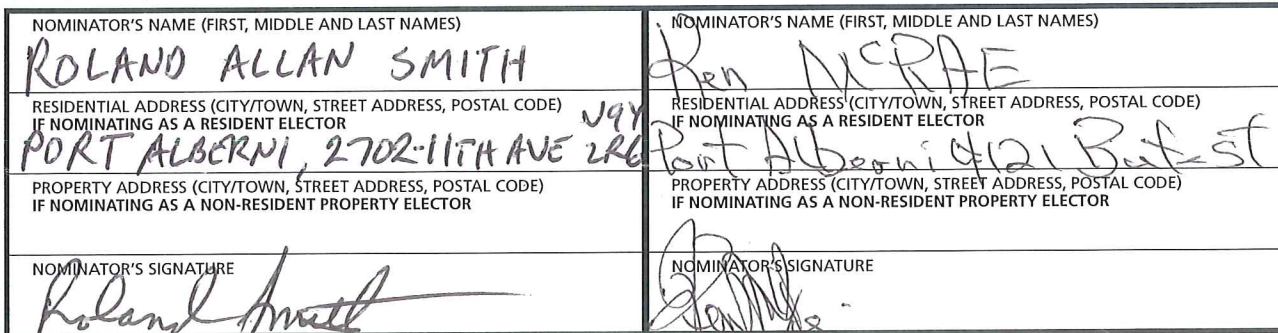 NOMINATOR'S NAME (FIRST, MIDDLE AND LAST NAMES)
ROLAND ALLAN SMITH
RESIDENTIAL ADDRESS (CITY/TOWN, STREET ADDRESS, POSTAL CODE)
IF NOMINATING AS A RESIDENT ELECTOR
PORT ALBERNI, 2702-11TH AVE V9Y 2R6
PROPERTY ADDRESS (CITY/TOWN, STREET ADDRESS, POSTAL CODE)
IF NOMINATING AS A NON-RESIDENT PROPERTY ELECTOR
NOMINATOR'S SIGNATURE
Roland Smith
NOMINATOR'S NAME (FIRST, MIDDLE AND LAST NAMES)
Ken McRAE
RESIDENTIAL ADDRESS (CITY/TOWN, STREET ADDRESS, POSTAL CODE)
IF NOMINATING AS A RESIDENT ELECTOR
Port Alberni 4121 ST
PROPERTY ADDRESS (CITY/TOWN, STREET ADDRESS, POSTAL CODE)
IF NOMINATING AS A NON-RESIDENT PROPERTY ELECTOR
NOMINATOR'S SIGNATURE